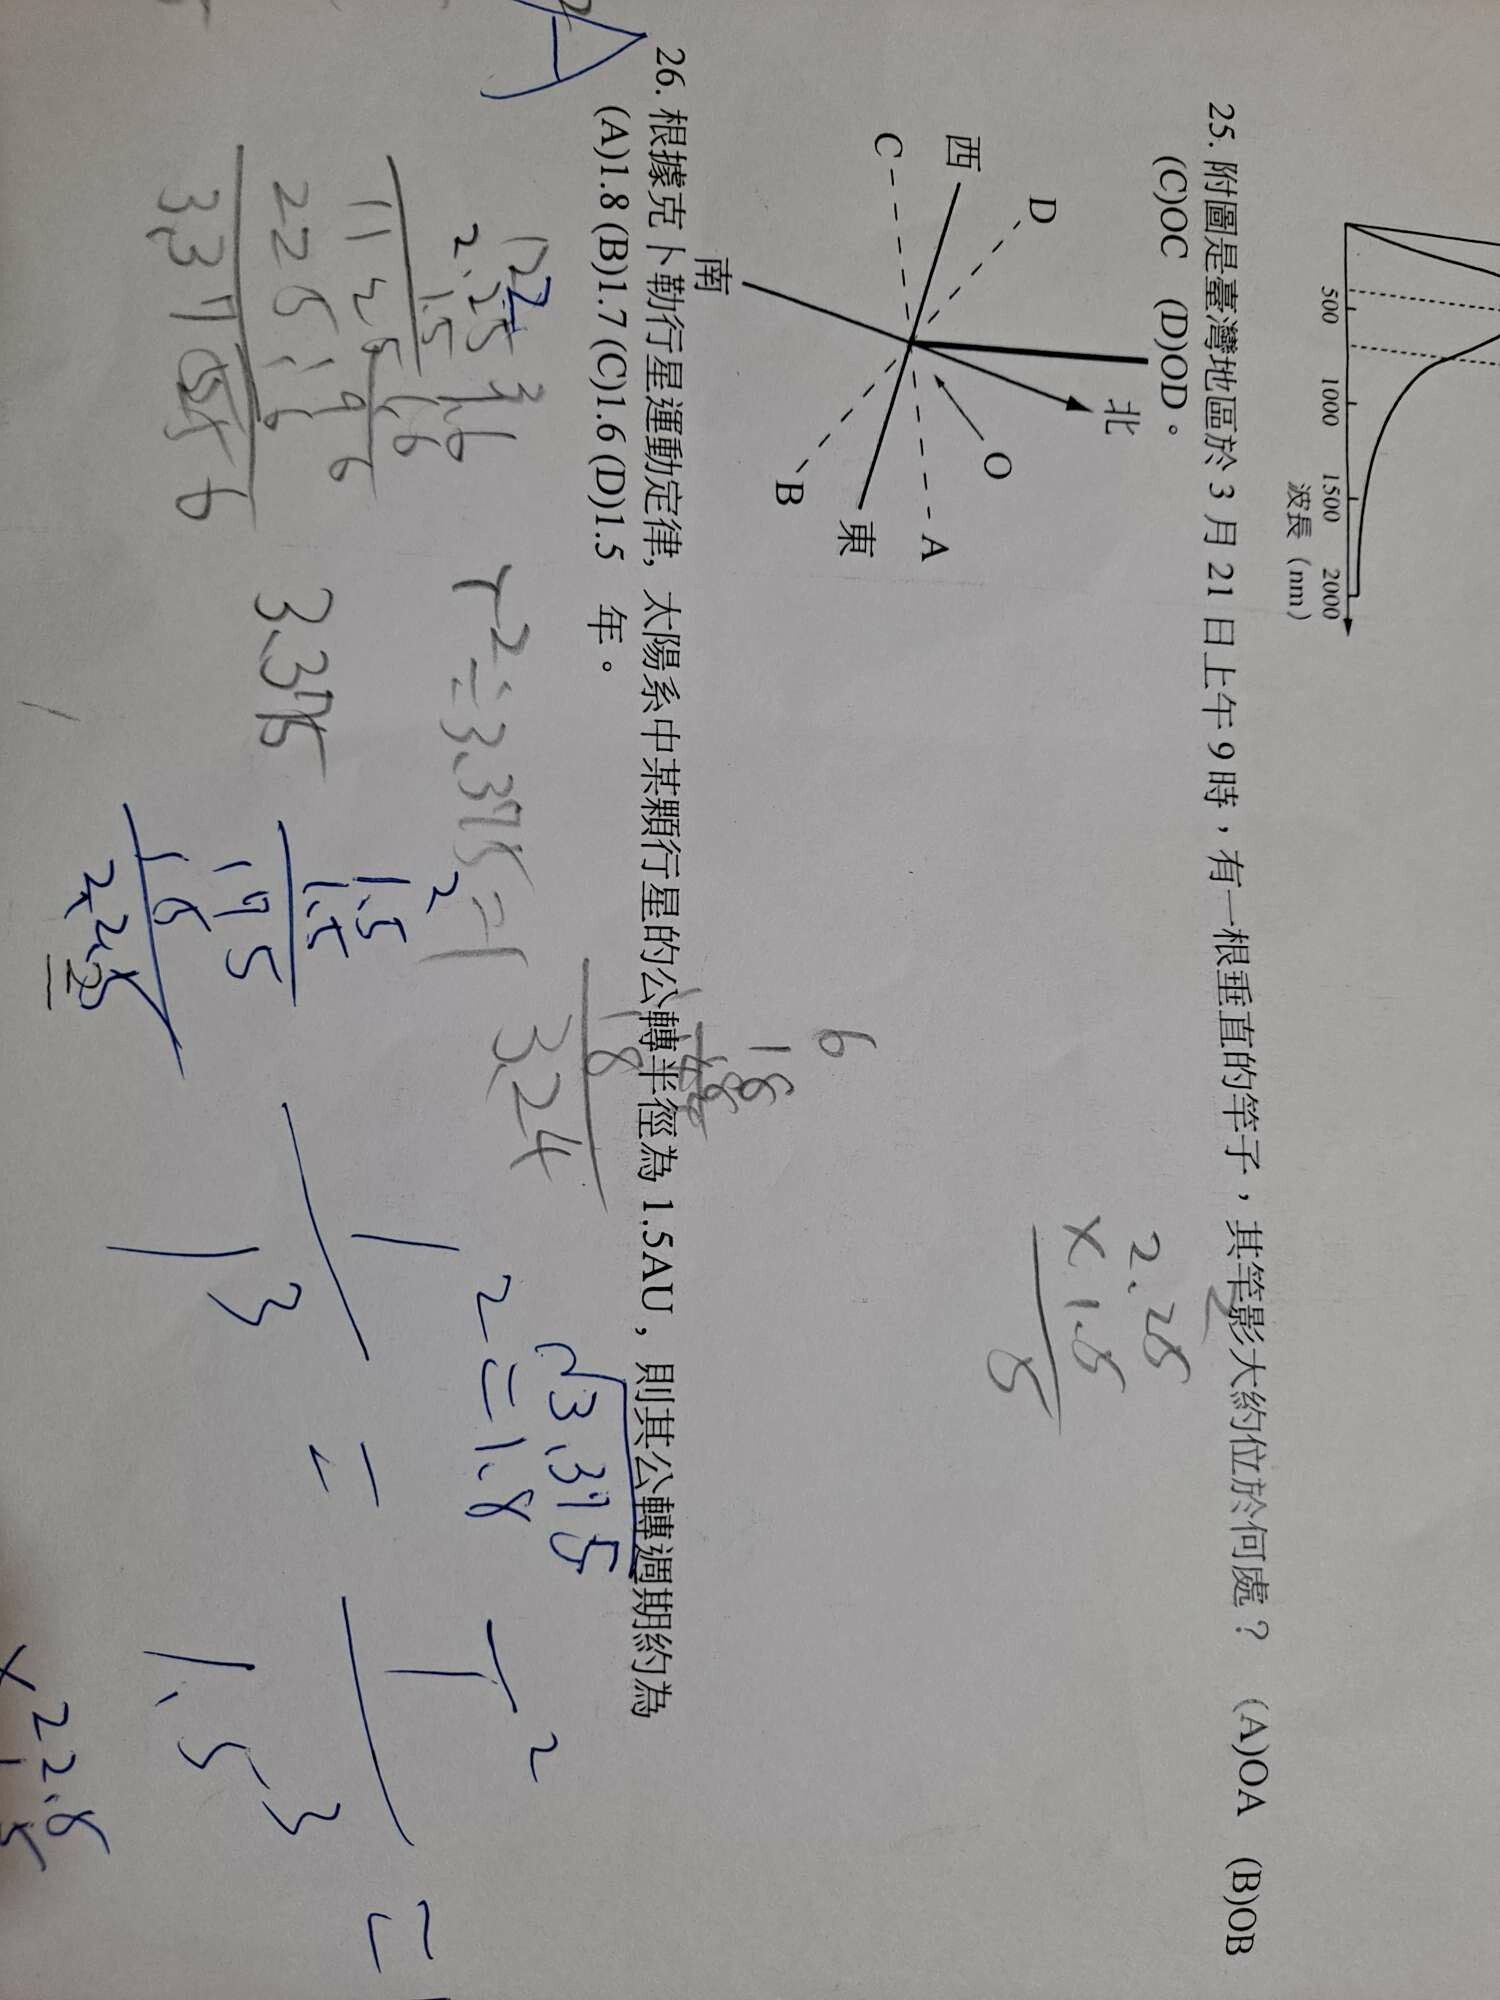 500 1000 1500 2000
波長（nm）
25. 附圖是臺灣地區於 3 月 21 日上午 9 時，有一根垂直的竿子，其竿影大約位於何處？ (A)OA (B)OB
(C)OC (D)OD。
北
O
D
A
西
東
C
B
南
2.25
x 1.5
5
6
18
26. 根據克卜勒行星運動定律，太陽系中某顆行星的公轉半徑為 1.5AU，則其公轉週期約為
(A)1.8 (B)1.7 (C)1.6 (D)1.5 年。
A
3.24
√3.375
T²
1.5³
=
1²
1³
=
2=1.8
r²=3.375=1
3.375
2.25
1.5
1125
225
3375
1.6
96
16
1.5
1.5
175
15
2.25
22.8
x